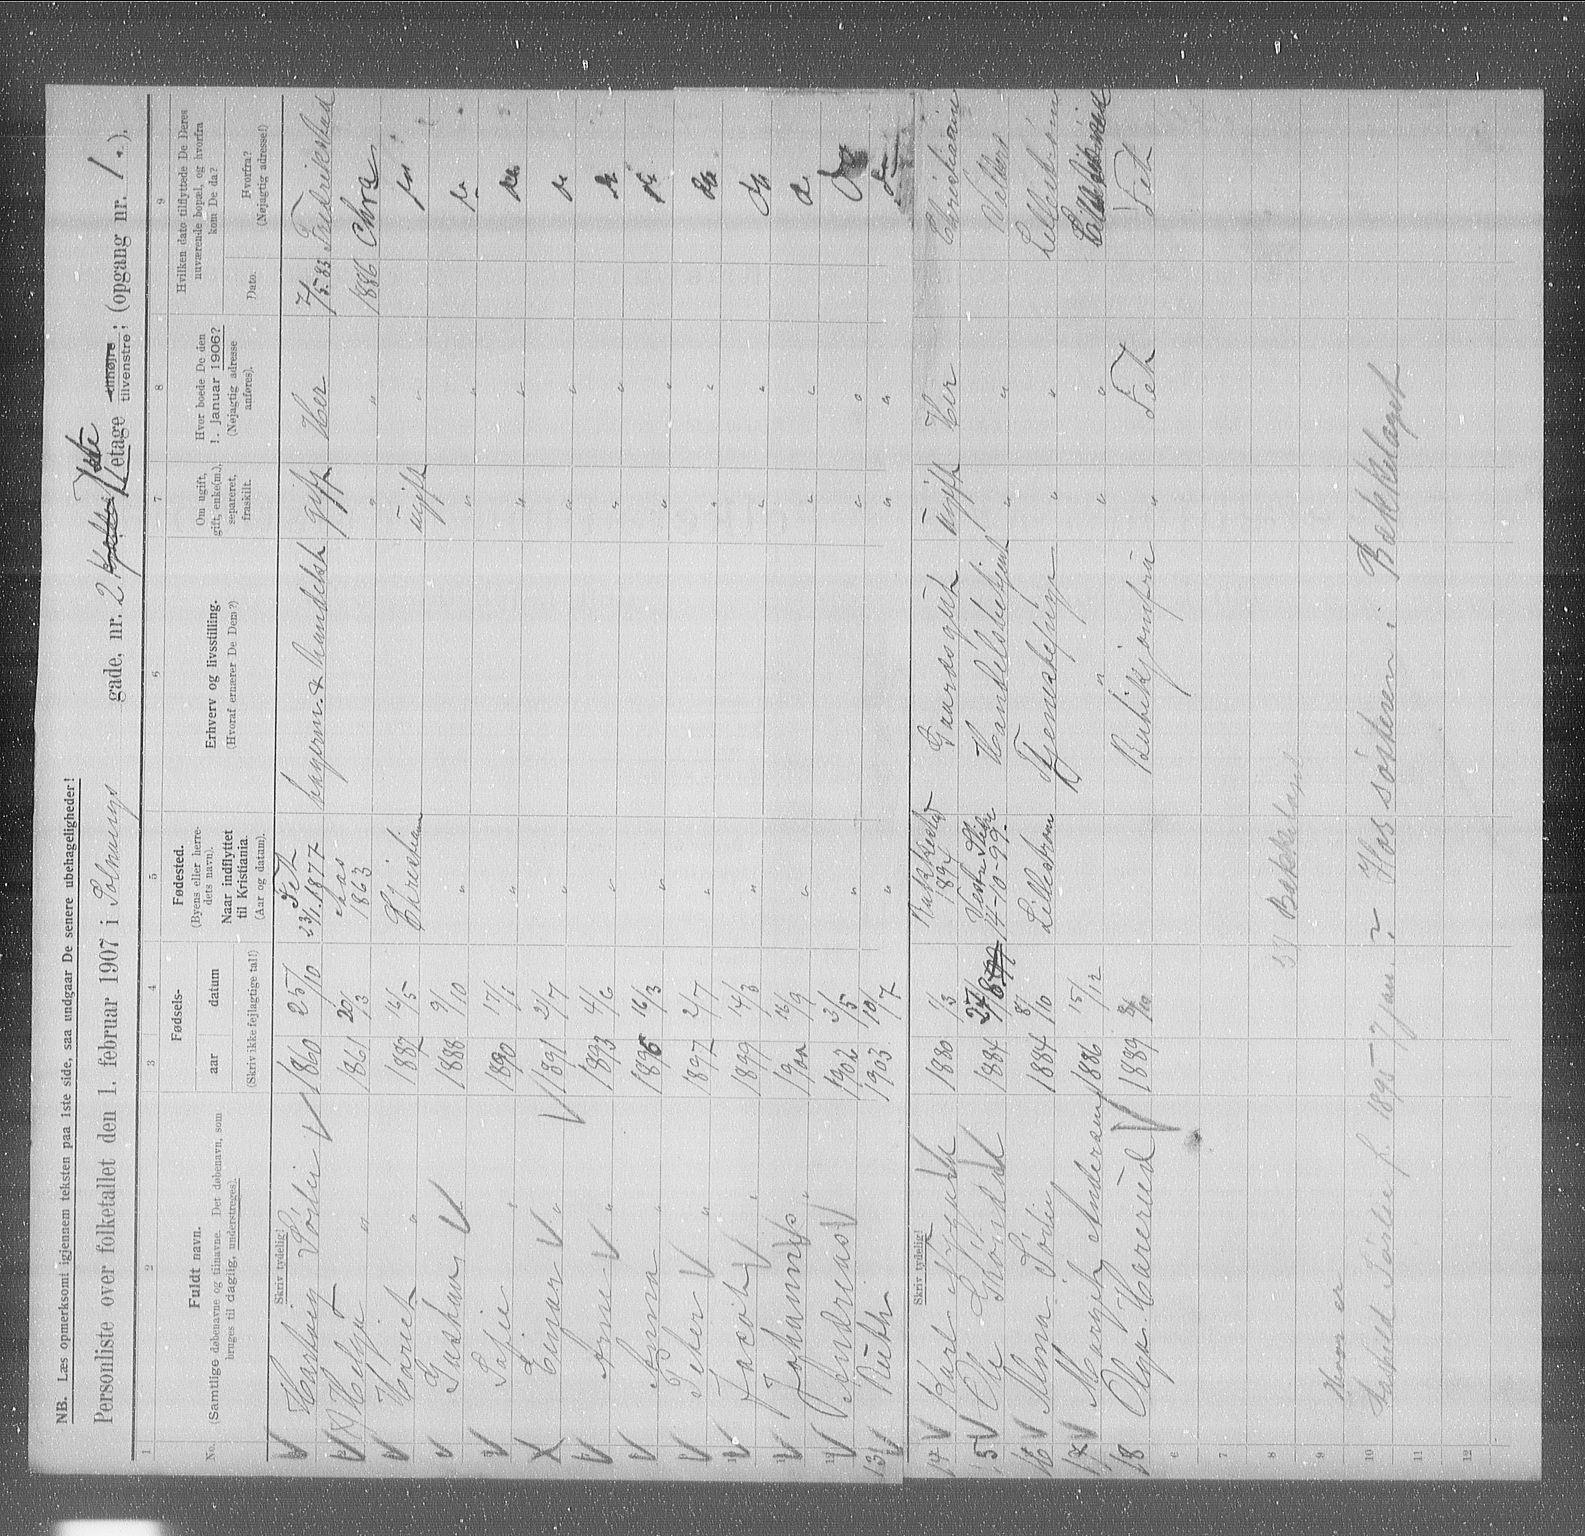 NB. Læs opmerksomt igjennem teksten paa 1ste side, saa undgaar De senere ubehageligheder!
Personliste over folketallet den 1. februar 1907 i gade, nr. 2 etage tilhøjre tilvenstre; (opgang nr. 1.).
1 2 3 4 5 6 7 8 9
No.
Fuldt navn.
(Samtlige døbenavne og tilnavne. Det døbenavn, som
bruges til daglig, understreges).
Fødsels-
aar datum
(Skriv ikke fejlagtige tal!)
Fødested.
(Byens eller herre-
dets navn).
Naar indflyttet
til Kristiania.
(Aar og datum).
Erhverv og livsstilling.
(Hvoraf ernærer De Dem?)
Om ugift,
gift, enke(m.),
separeret,
fraskilt.
Hvor boede De den
1. januar 1906?
(Nøjagtig adresse
anføres).
Hvilken dato tilflyttede De Deres
nuværende bopæl, og hvorfra
kom De da?
Dato.
Hvorfra?
(Nøjagtig adresse!)
Skriv tydelig!
Hartvig Sørlie 1860 25/10 Fet 23/1. 1877 gift Her 7/5.83 Fredrikstad
Helga " 1861 Aas 1863 " " 1886 Chra
Harriet " 1887 16/5 Christiania ugift "
Gudrun 1888 9/10 " " "
Sofie " 1890 17/1 " " "
Einar " 1891 2/7 " " "
Arne " 1893 4/6 " " "
Anna " 1896 16/3 " " "
Peter " 1897 2/7 " " "
Jacob " 1899 14/3 " " "
Johannes " 1900 16/9 " " "
Andreas 1902 3/5 " " "
13 Ruth 1903 10/7 " " "
Skriv tydelig!
14 Karl 1880 1/3 1894 Gaardsgut ugift Her Christiania
15 Ole 1884 14-10-99 Handelsbetjent " "
16 Alma Sørlie 1884 8/10 Lillestrøm Tjenestepige " " Lillestrøm
17 Margit Andersen 1886 15/12 " " "
18 Olga Harerud 1889 Butikjomfru " Fet Fet
6
7
8
9
10
11
12
Bækkelaget
Hvor er
Sørlie f. 1895-7 jan. ? Hos søsteren i Bækkelaget